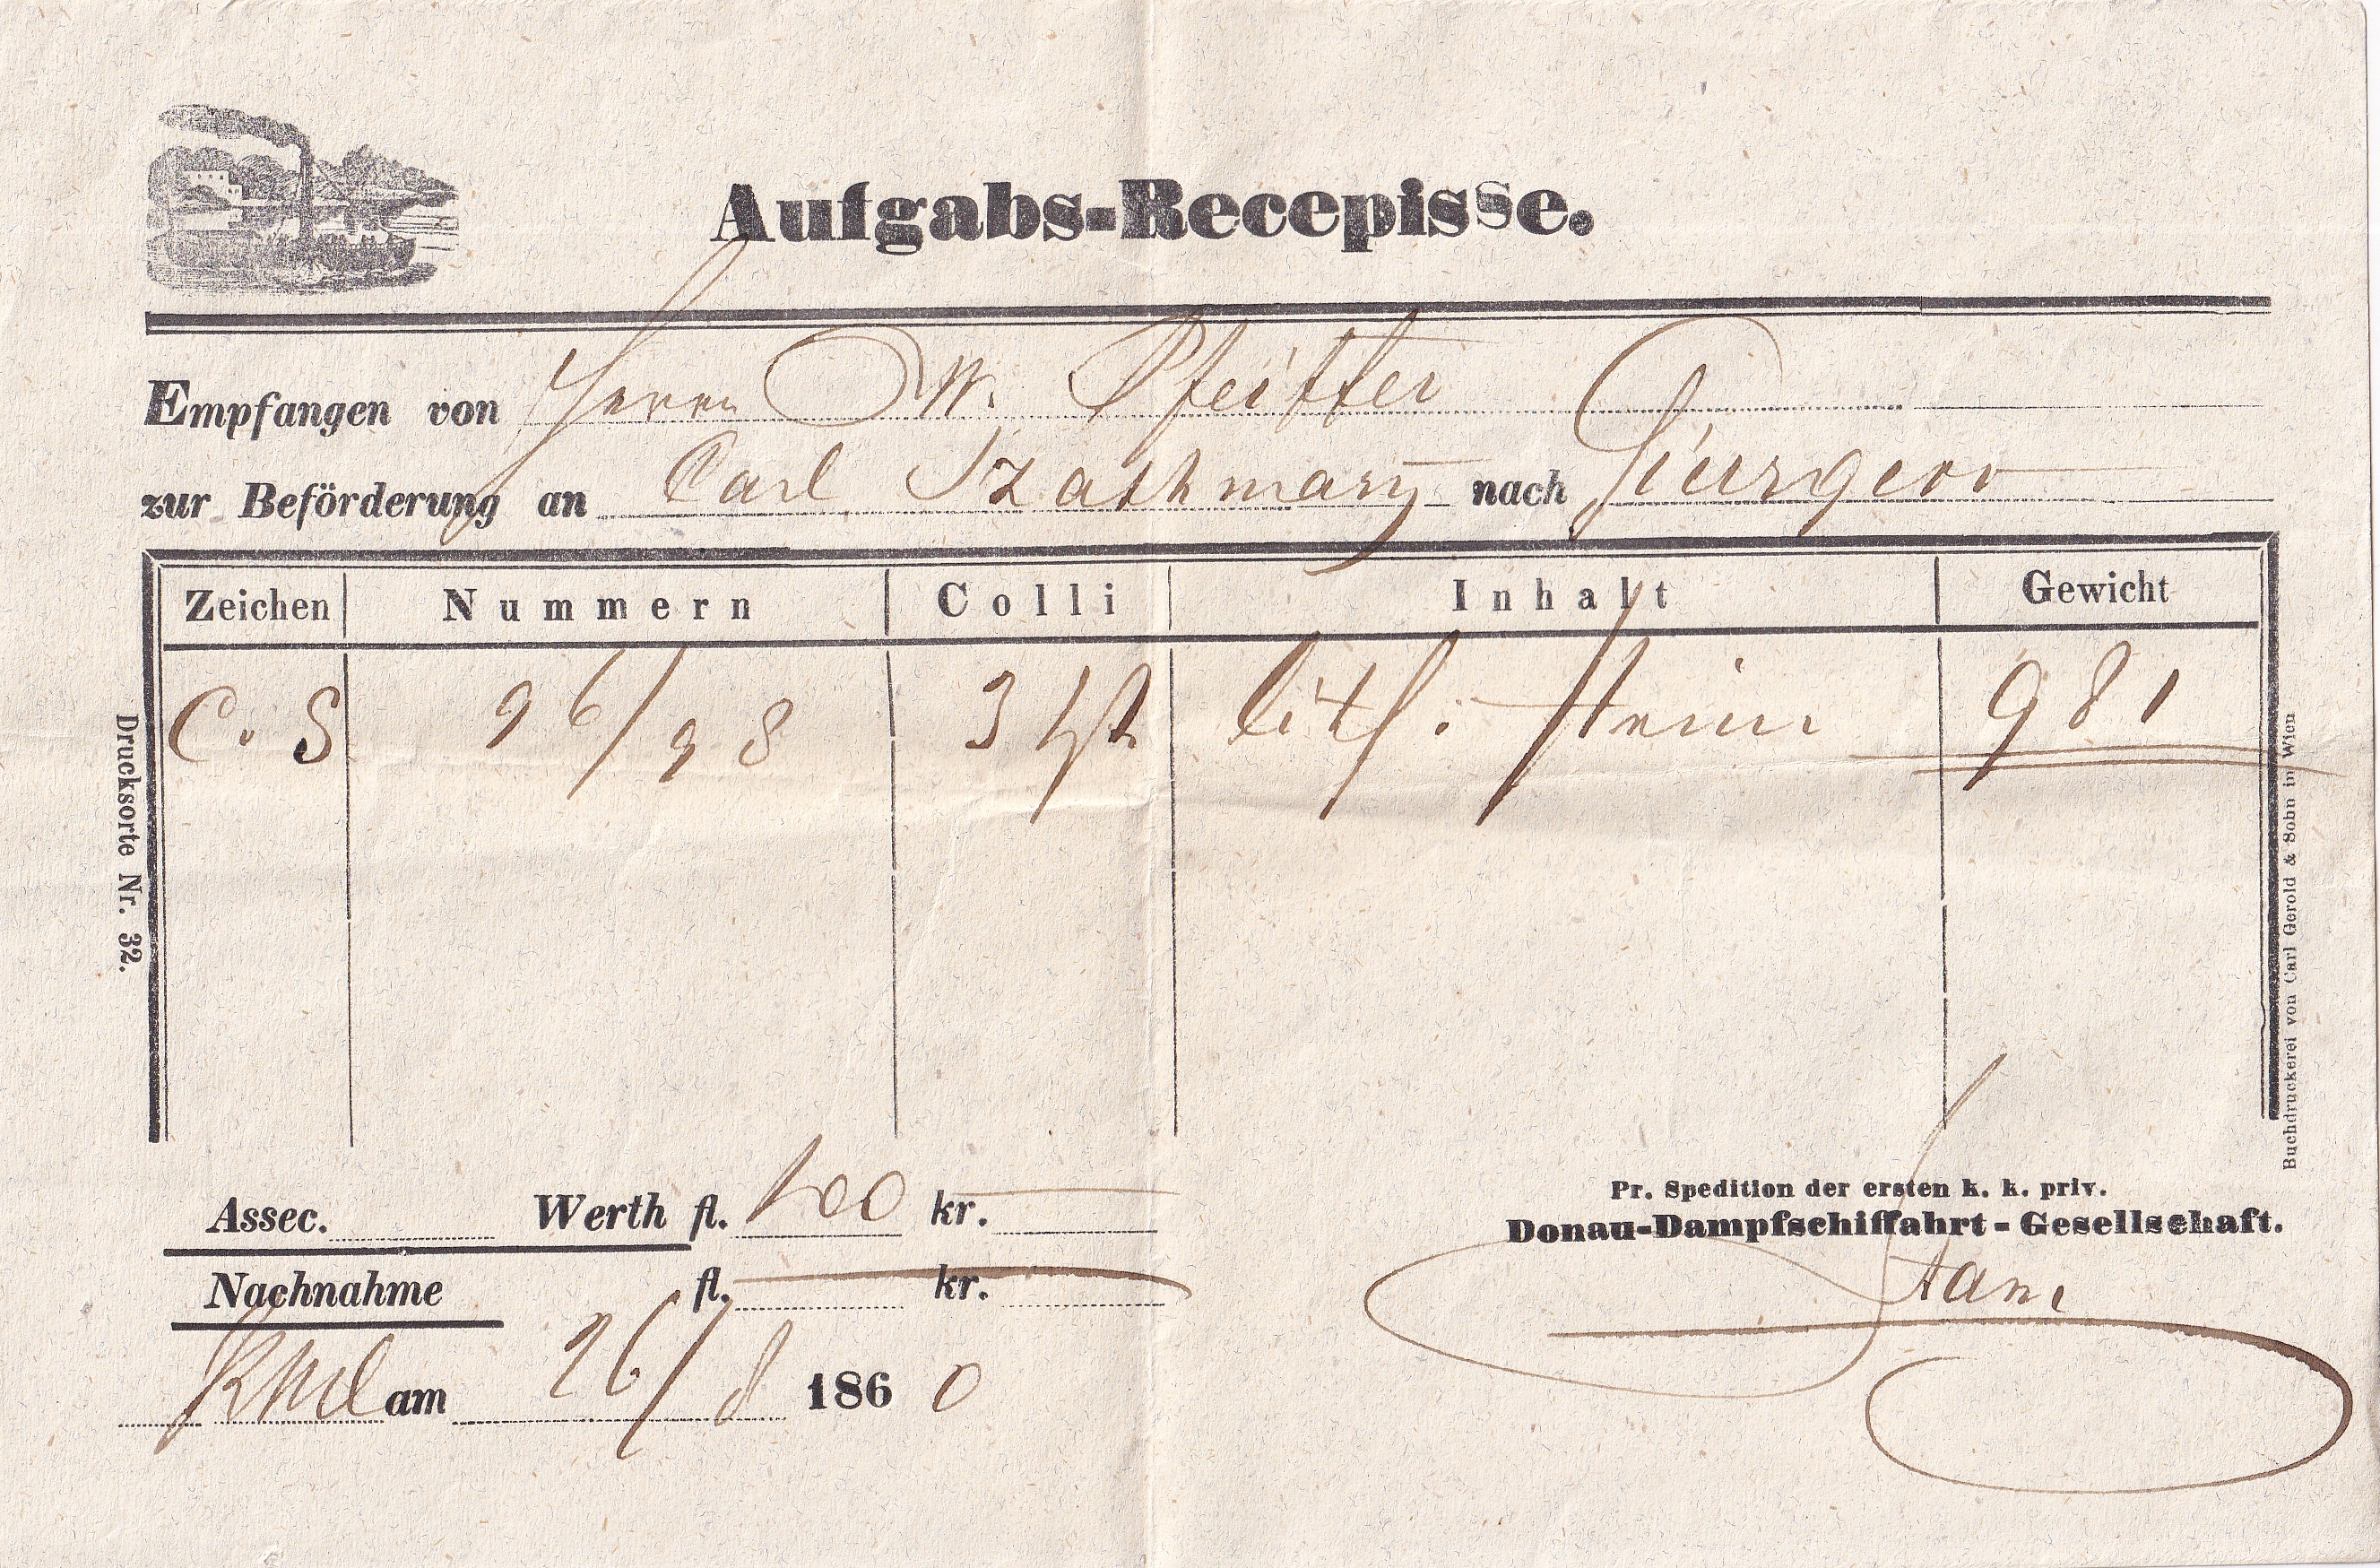 Aufgabs-Recepisse.
Empfangen von Herrn W. Pfeiffer
zur Beförderung an Carl Szathmary nach Giurgevo
Zeichen Nummern Colli Inhalt Gewicht
C. S 96/98 3 litf. Steine 981
Drucksorte Nr. 32.
Buchdruckerei von Carl Gerold & Sohn in Wien
Assec. Werth fl. 100 kr.
Nachnahme fl. kr.
am 26/8 1860
Pr. Spedition der ersten k. k. priv.
Donau-Dampfschiffahrt-Gesellschaft.